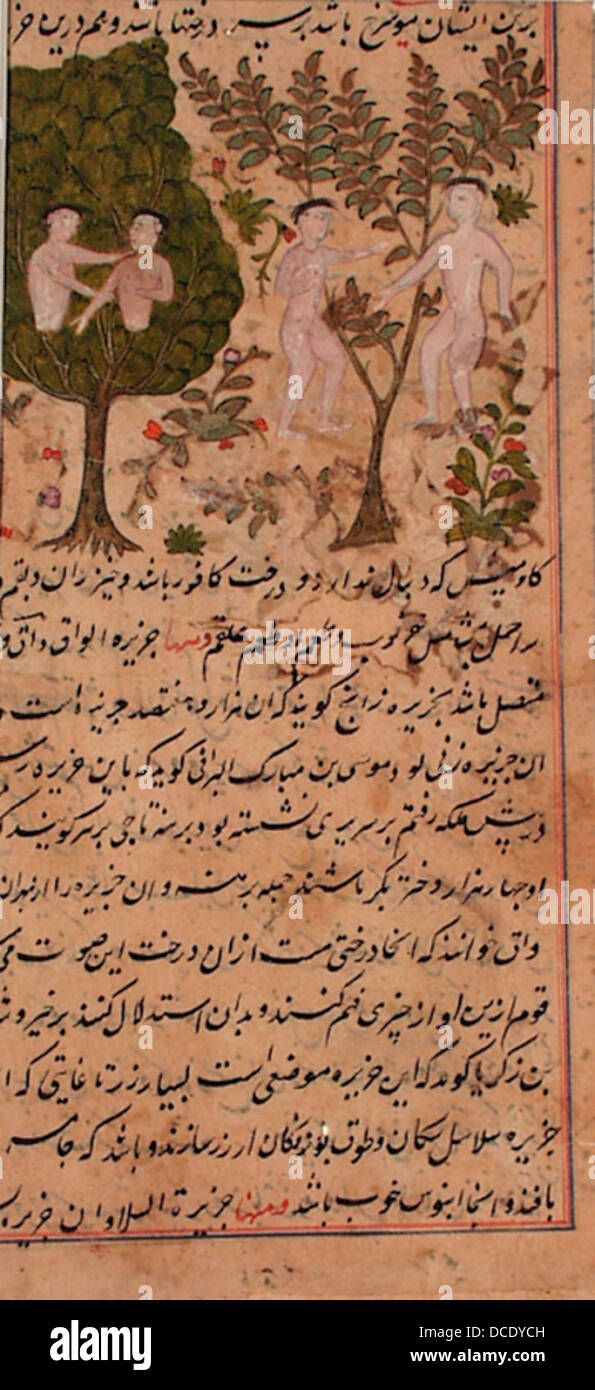 برین ایشان موی سرخ باشد بر سر درختها باشند و هم درین
کاومیش که دنبال ندارد و درخت کافور باشد و خیزران و بقم
ومنها جزیره الواق واق
متصل باشد بجزیره زانج کویند که آن هزار و هفتصد جزیره است
ان جزیره زنی بود موسی بن مبارک السیرافی کوید که باین جزیره
در پیش ملکه رفتم بر سریری نشسته بود برهنه تاجی بر سر کویند
و چهار هزار دختر بکر باشند جمله برهنه و ان جزیره را از بهران
واق خوانند که انجا درختی هست از ان درخت این صوت
قوم ازین اواز چیزی فهم کنند و بدان استدلال کنند بر خیر و
بن زکریا کوید که این جزیره موضعی است بسیار زر تا غایتی که
جزیره سلاسل سکان و طوق بوزینکان از زر سازند و باشد که جامه
بافند و انجا ابنوس خوب باشد ومنها جزیرة السلاوان جزیره
alamy
Image ID: DCDYCH
www.alamy.com